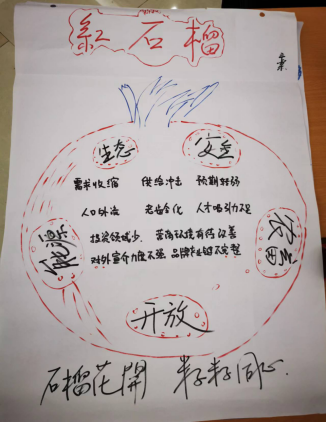 紅石榴
生态 安全
需求收缩 供给冲击 预期转弱
人口外流 老龄全化 人才吸引力不足
能源 农田
投资领域少 营商环境有待改善
对外宣介力度不强 品牌产业链不完整
开放
石榴花開 籽籽同心.